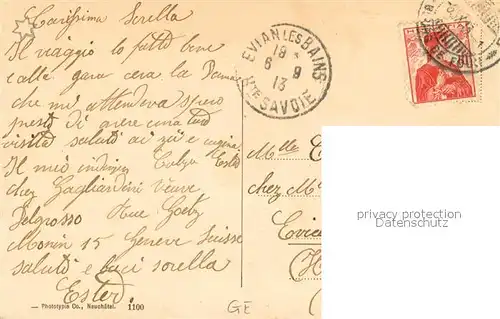 Carissima Sorella
Il viaggio lo fatto bene
e alla gara cera la
che mi attendeva spero
presto di avere una tua
visita saluti ai zii e cugina
Il mio indirizzo Ester
chez Gagliardini Veuve
Delgrosso Rue Goetz
Monin 15 Geneve Suisse
saluti e baci sorella
Ester
— Phototypie Co., Neuchâtel. 1100
GE
EVIAN LES BAINS
18
6 9
13
HTE SAVOIE
Mlle
chez M
Evia
(H
privacy protection
Datenschutz